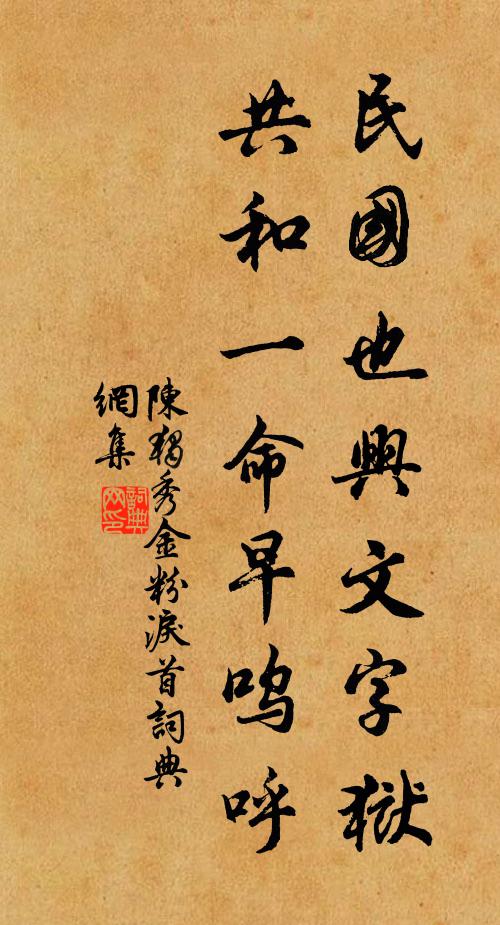 民國也興文字獄
共和一命早嗚呼
陳獨秀金粉淚首詞典
網集
詞典網印